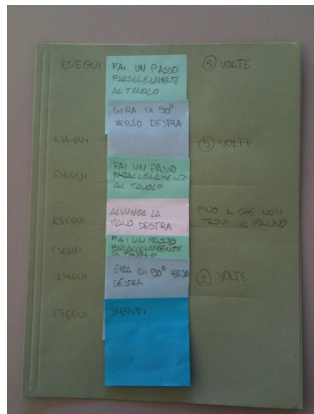 ESEGUI FAI UN PASSO PARALLELAMENTE AL TAVOLO 5 VOLTE
GIRA DI 90° VERSO DESTRA
ESEGUI 5 VOLTE
ESEGUI FAI UN PASSO PARALLELAMENTE AL TAVOLO
ESEGUI ALLUNGA LA MANO DESTRA FINO A CHE NON TROVI IL
ESEGUI FAI UN PASSO PARALLELAMENTE AL TAVOLO
ESEGUI GIRA DI 90° VERSO DESTRA VOLTE
ESEGUI SIEDITI